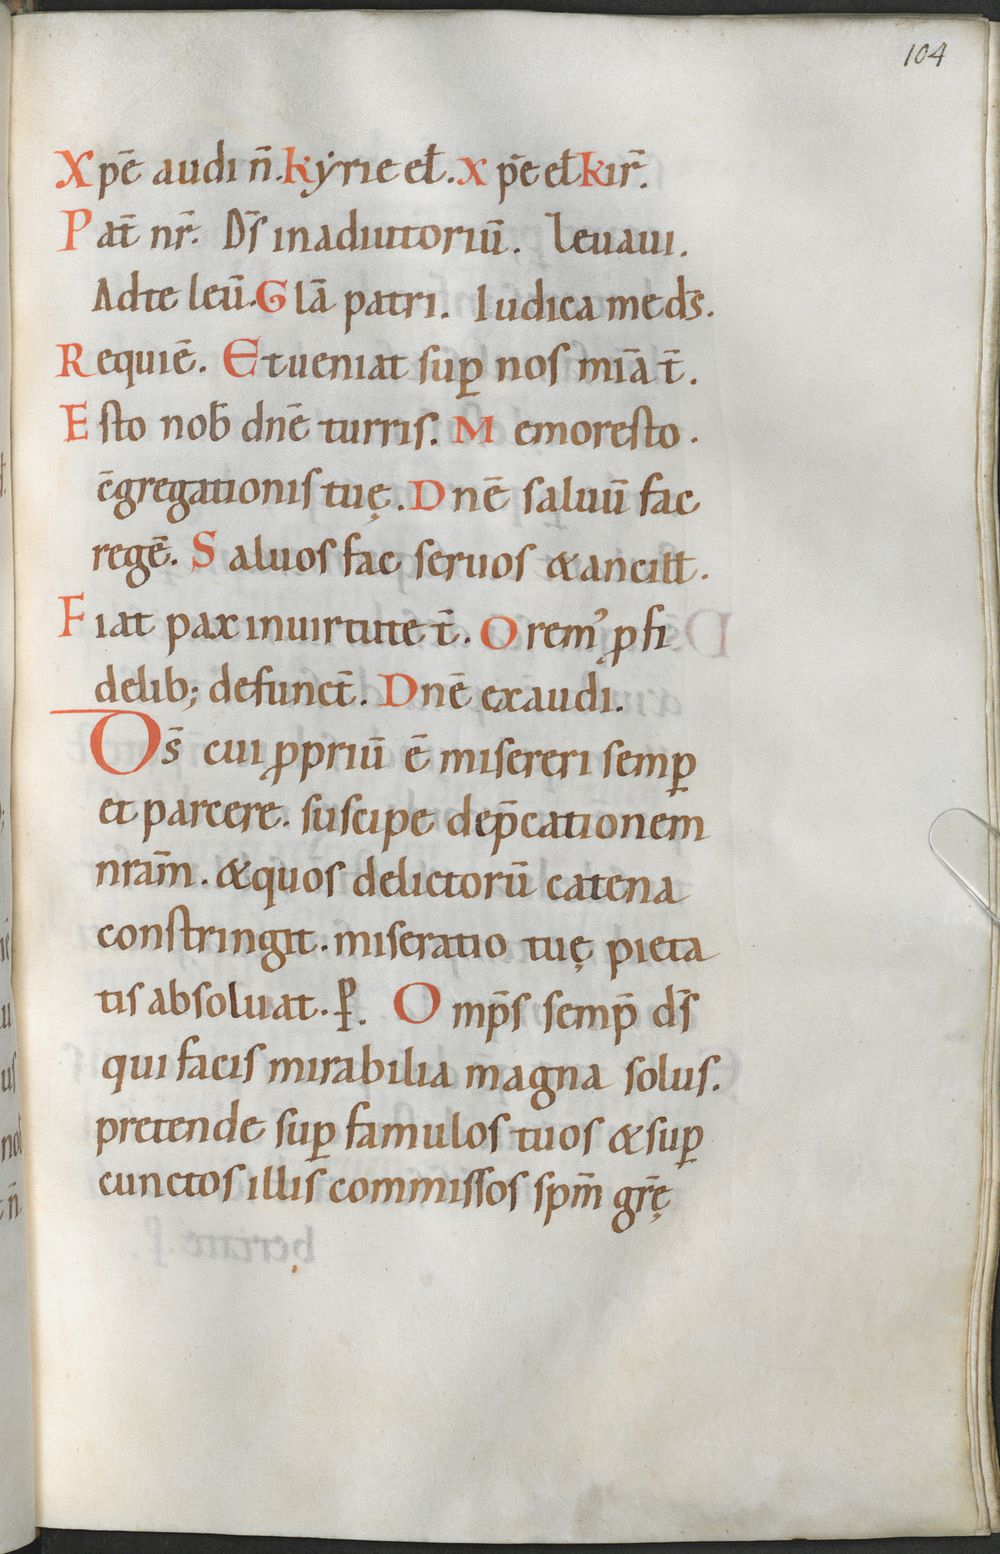 104
Xpē audi n̄. kẏrie el̄. xpē el̄ kir̄.
Pat̄ nr̄. Ds̄ in adiutoriū. Leuaui.
Ad te leū. Glā patri. Iudica me ds̄.
Requiē. Et ueniat sup̱ nos mīa t̄.
Esto nob̄ dnē turris. Memor esto.
c̄gregationis tuę. Dnē saluū fac
regē. Saluos fac seruos & ancill̄.
Fiat pax in uirtute t̄. Orem᾽ ꝓ fi
delib; defunct̄. Dnē exaudi.
Ds̄ cui ꝓpriū ē misereri semp̱
et parcere. suscipe dep̄cationem
nrām. & quos delictorū catena
constringit. miseratio tuę pieta
tis absoluat. ꝑ. Omp̄s semp̄ ds̄
qui facis mirabilia magna solus.
pretende sup̱ famulos tuos & sup̱
cunctos illis commissos spm̄ gr̄ę